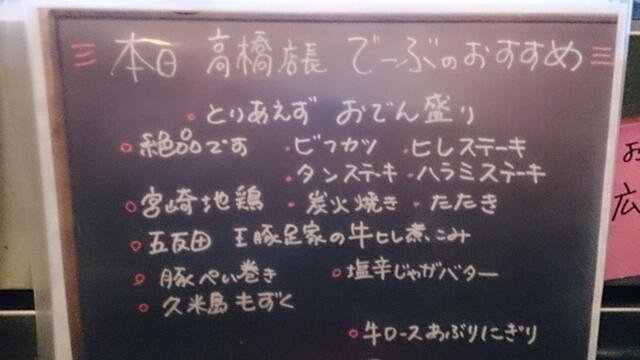 本日 高橋店長 でーぶのおすすめ
とりあえず おでん盛り
絶品です ・ビフカツ ・ヒレステーキ
・タンステーキ ・ハラミステーキ
宮崎地鶏 ・炭火焼き ・たたき
五反田 王豚足家の牛ヒレ煮こみ
豚ぺい巻き 塩辛じゃがバター
久米島もずく
牛ロースあぶりにぎり
広